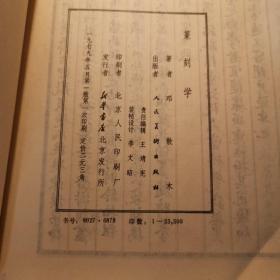 篆刻学
著者 邓散木
出版者 人民美术出版社
责任编辑 王靖宪
装帧设计 李文昭
印刷者 北京人民印刷厂
发行者 新华书店北京发行所
一九七九年五月第一版第一次印刷 定价二元三角
书号：8027·6879 印数：1—33,500